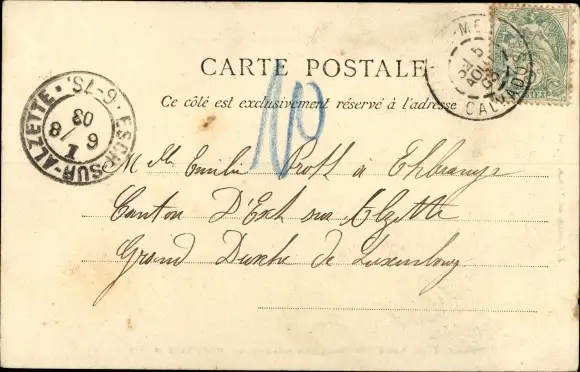 CARTE POSTALE
Ce côté est exclusivement réservé à l'adresse
ESCH-SUR-ALZETTE · 6-7S. ·
6 8
1
03
CALVADOS
No
M Elle Emilie Proth à Ehlerange
Canton D'Esch sur Alzette
Grand Duché de Luxembourg